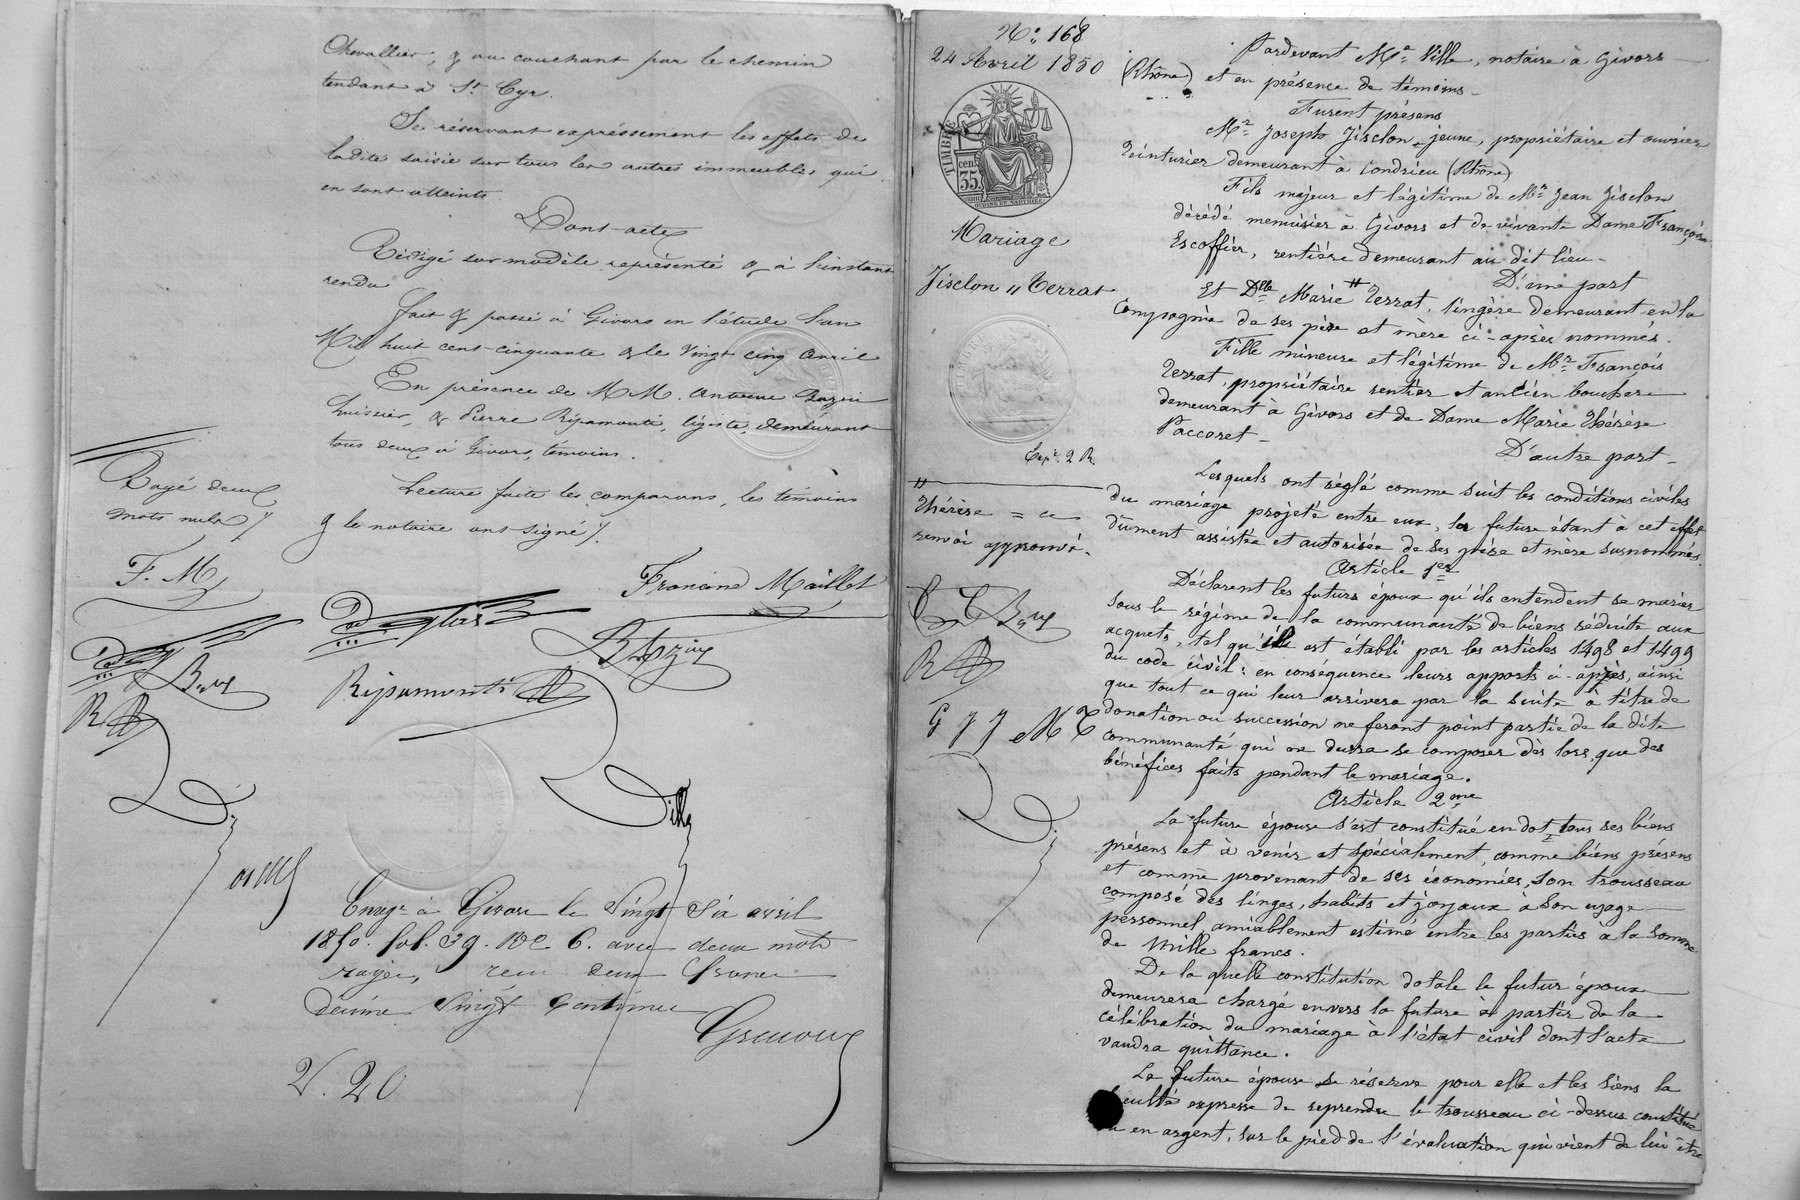 Chevallier, & au couchant par le chemin
tendant à St Cyr.
Se réservant expréssement les effets de
ladite saisie sur tous les autres immeubles qui
en sont atteints.
Dont acte
Rédigé sur modèle représenté & à l'instant
rendu
Fait & passé à Givors en l'étude l'an
Mil huit cent cinquante & le vingt cinq avril
En présence de M M. Antoine
huissier, & Pierre Ripamonti, légiste, demeurant
tous deux à Givors, témoins.
Lecture faite les comparans, les témoins
& le notaire ont signé /.
Rayé deux
mots nuls /
F. M
Francine Maillot
Ripamonti
R
Enregé à Givors le vingt six avril
1850. fol. 39. Re C 6. avec deux mots
rayés, reçu deux francs
décime vingt centimes
2. 20
No: 168
24 Avril 1850
TIMBRE
cen.
35
Mariage
Jisclon " Terrat
Exp. 2 R.
Thérèse = ce
renvoi approuvé.
R
G J J M T
Pardevant Me Ville, notaire à Givors
(Rhône) et en présence de témoins
Furent présens
Mr Joseph Jisclon jeune, propriétaire et ouvrier
teinturier demeurant à Condrieu (Rhône)
Fils majeur et légitime de Mr Jean Jisclon
décédé menuisier à Givors et de vivante Dame Françoise
Escoffier, rentière demeurant au dit lieu
D'une part
Et Dlle Marie " Terrat, lingère demeurant en la
Compagnie de ses père et mère ci-après nommés.
Fille mineure et légitime de Mr François
Terrat, propriétaire rentier et ancien boucher
demeurant à Givors et de Dame Marie Thérèse
Paccoret
D'autre part
Lesquels ont réglé comme suit les conditions civiles
du mariage projeté entre eux, la future étant à cet effet
dûment assistée et autorisée de ses père et mère susnommés.
Article 1er
Déclarent les futurs époux qu'ils entendent se marier
sous le régime de la communauté de biens réduite aux
acquets, tel qu'il est établi par les articles 1498 et 1499
du code civil: en conséquence leurs apports ci-après, ainsi
que tout ce qui leur arrivera par la suite à titre de
donation ou succession ne feront point partie de la dite
communauté qui ne devra se composer dès lors, que des
bénéfices faits pendant le mariage.
Article 2me
La future épouse s'est constitué en dot tous ses biens
présens et à venir et spécialement, comme biens présens
et comme provenant de ses économies, son trousseau
composé des linges, habits et joyaux à son usage
personnel, amiablement estimé entre les parties à la somme
de mille francs.
De la quelle constitution dotale le futur époux
demeurera chargé envers la future à partir de la
célébration du mariage à l'état civil dont l'acte
vaudra quittance.
La future épouse se réserve pour elle et les siens la
expresse de reprendre le trousseau ci-dessus constitué
en argent, sur le pied de l'évaluation qui vient de lui être